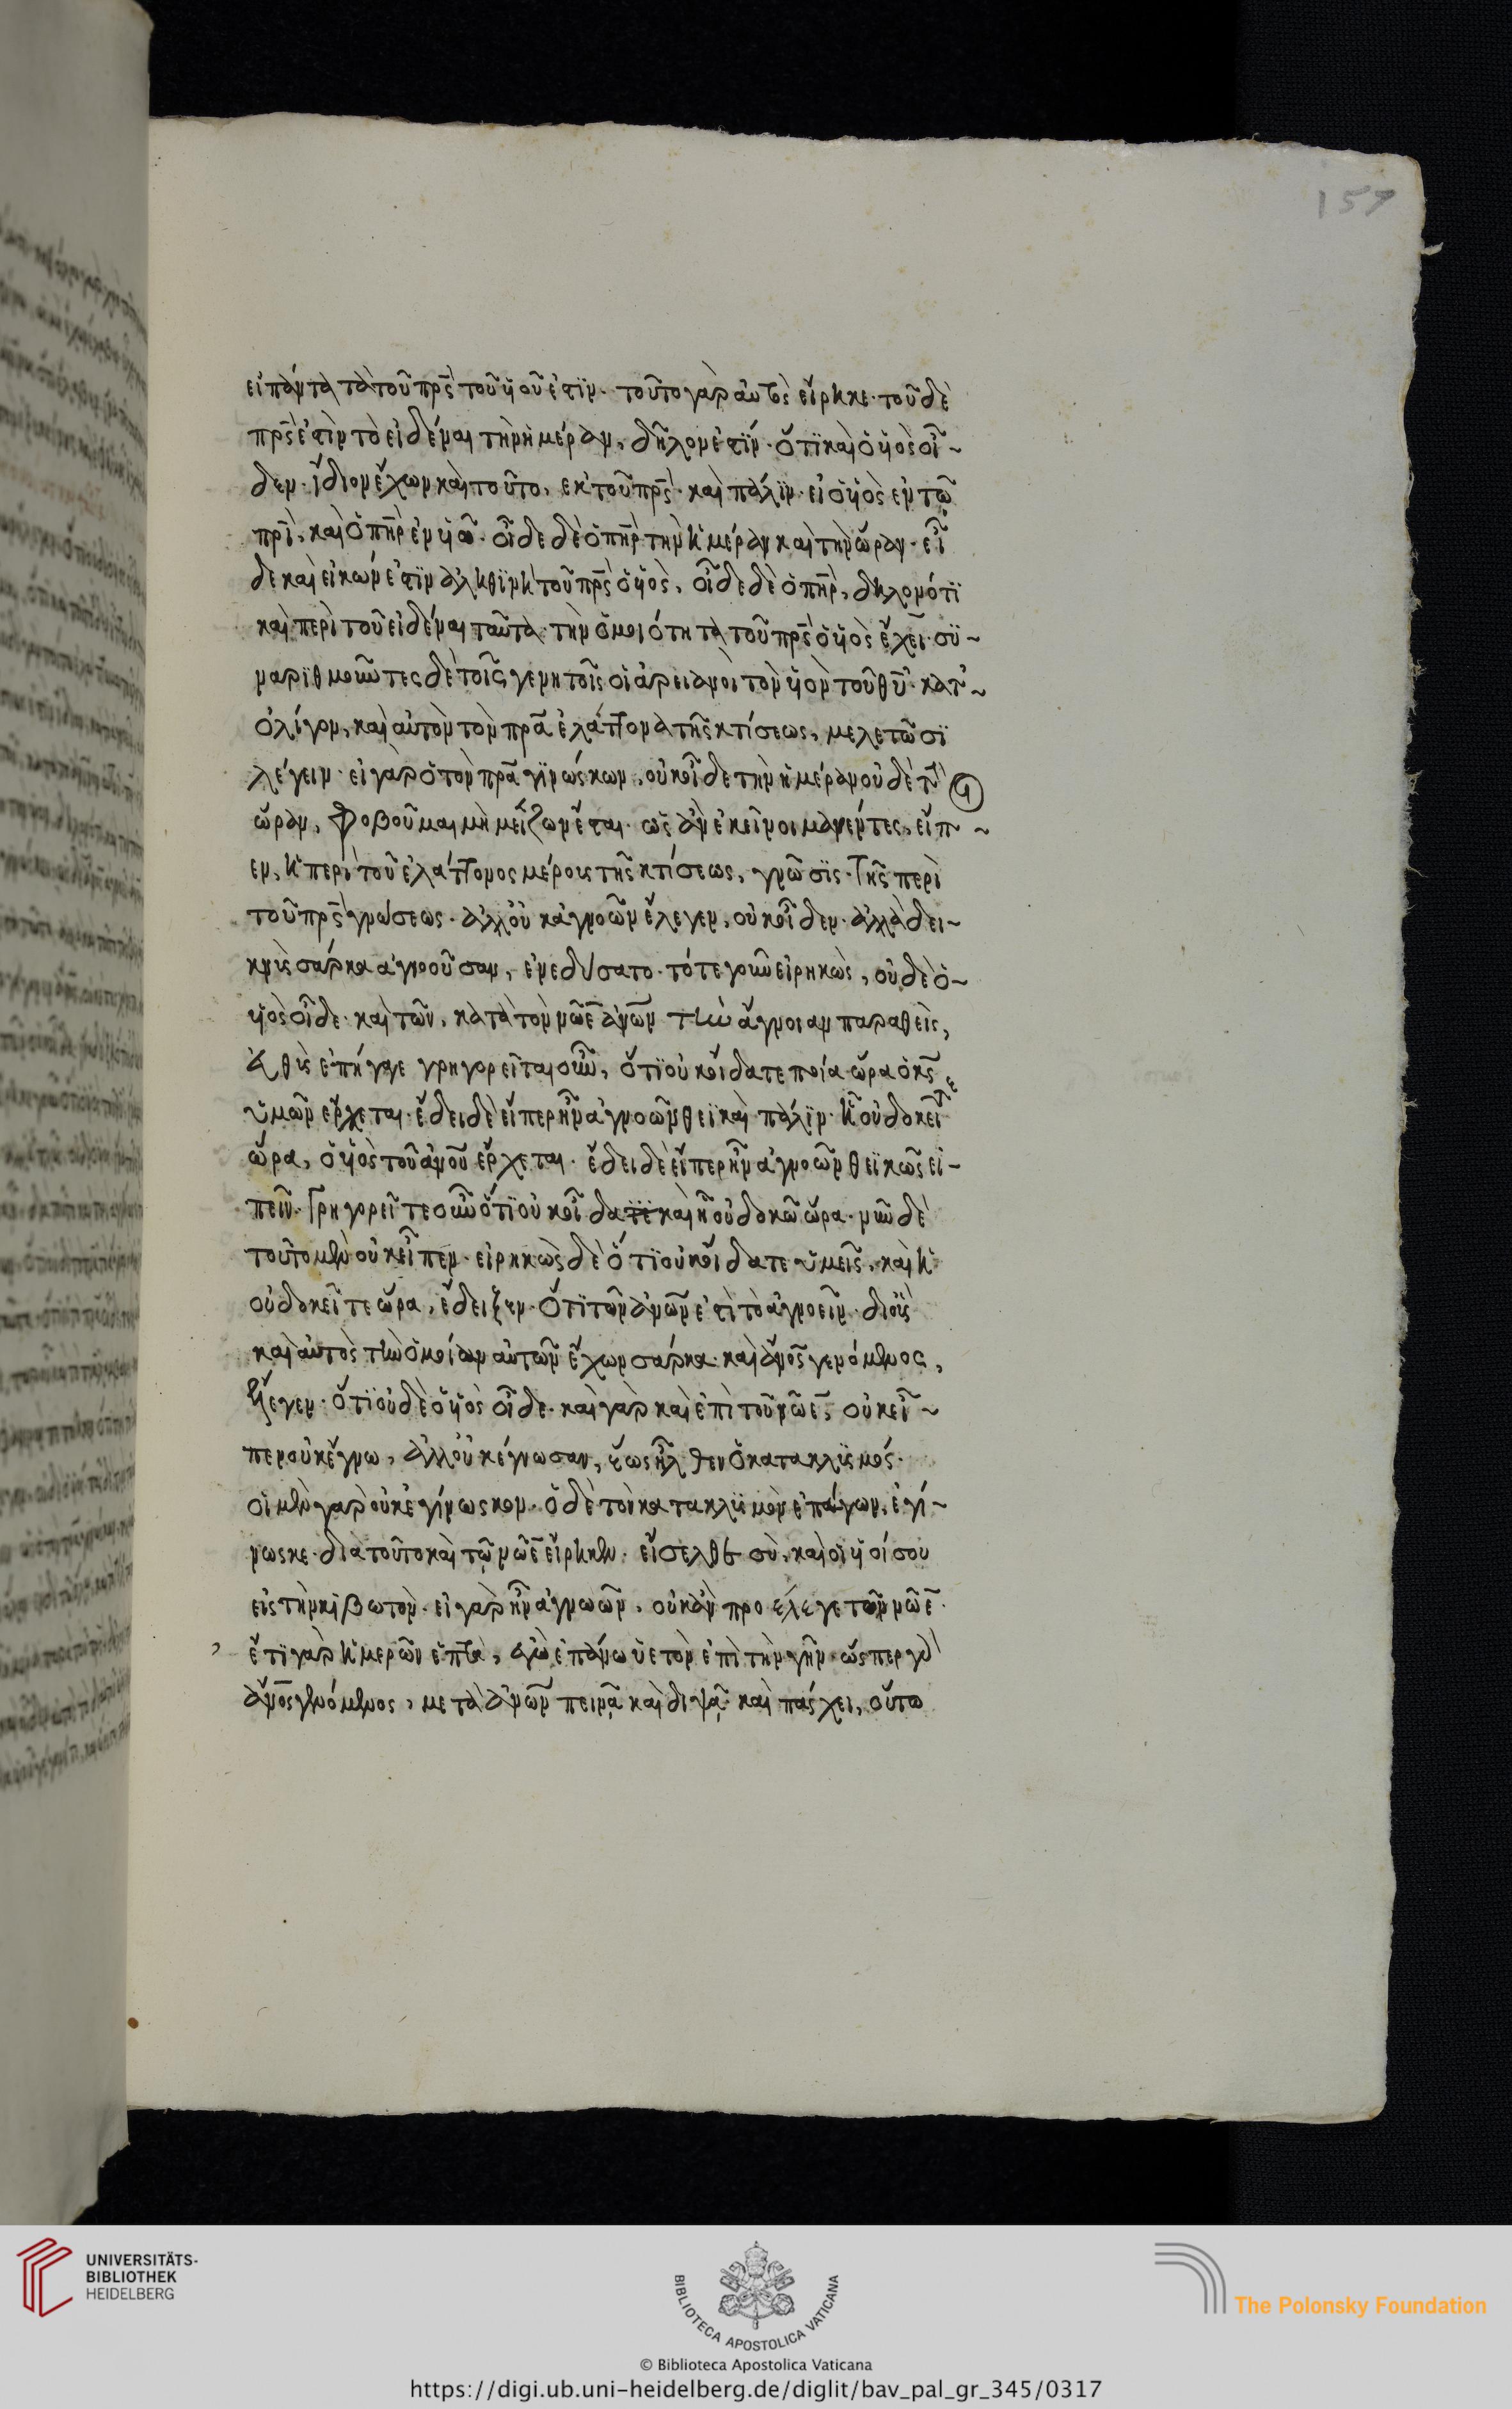 157
εἰ πάντα τὰ τοῦ πρς τοῦ υἱοῦ ἐστιν· τοῦτο γὰρ αὐτὸς εἴρηκε· τοῦ δὲ
πρς ἐστὶν τὸ εἰδέναι τὴν ἡμέραν, δῆλον ἐστϊν· ὅτι καὶ ὁ υἱὸς οἶ-
δεν· ἴδιον ἔχων καὶ τοῦτο, ἐκ τοῦ πρς· καὶ πάλϊν· εἰ ὁ υἱὸς ἐν τῶ
πρι, καὶ ὁ πηρ ἐν υἱῶ· οἶδε δὲ ὁ πηρ τὴν ἡμέραν καὶ τὴν ὥραν· εἴ
δε καὶ εἰκών ἐστϊν ἀληθϊνὴ τοῦ πρς ὁ υἱὸς, οἶδε δὲ ὁ πηρ, δηλονότϊ
καὶ περὶ τοῦ εἰδέναι ταῦτα· τὴν ὁμοιότητα τοῦ πρς ὁ υἱὸς ἔχει· συ-
ναρϊθμοῦντες δὲ τοῖς γενητοῖς οἱ ἀρειανοὶ τὸν υἱὸν τοῦ θυ· κατ'
ὀλίγον, καὶ αὐτὸν τὸν πρα ἐλάττονα τῆς κτίσεως, μελετῶσϊ
λέγειν· εἰ γὰρ ὁ τὸν πρα γϊνώσκων, οὐκ οἶδε τὴν ἡμέραν οὐδὲ τὴν
ὥραν, φοβοῦμαι μὴ μείζων ἔσται· ὡς ἂν ἐκεῖνοι μανέντες, εἴπ-
εν, ἡ περὶ τοῦ ἐλάττονος μέρους τῆς κτίσεως, γνῶσϊς· τῆς περὶ
τοῦ πρς γνώσεως· ἀλλ' οὐκ ἀγνοῶν ἔλεγεν, οὐκ οἶδεν· ἀλλὰ δει-
κνὺς σάρκα ἀγνοοῦσαν, ἐνεδύσατο· τότε γοῦν εἰρηκὼς, οὐδὲ ὁ
υἱὸς οἶδε· καὶ τῶν, κατὰ τὸν νῶε ἀνων τὴν ἄγνοιαν παραθεὶς,
εὐθὺς ἐπήγαγε γρηγορεῖται οὖν, ὅτϊ οὐκ οἴδατε ποία ὥρα ὁ κς
ὑμῶν ἔρχεται· ἔδει δὲ εἴπερ ἦν ἀγνοῶν θεϊκαὶ πάλϊν· ἧ οὐ δοκεῖτε
ὥρα, ὁ υἱὸς τοῦ ἀνου ἔρχεται· ἔδει δὲ εἴπερ ἦν ἀγνοῶν θεϊκῶς εἰ-
πεῖν· Γρηγορεῖτε οὖν ὅτϊ οὐκ οἶδα καὶ ἧ οὐ δοκῶ ὥρα· νῦν δὲ
τοῦτο μὲν οὐκ εἶπεν· εἰρηκὼς δὲ ὅτϊ οὐκ οἴδατε ὑμεῖς, καὶ ἧ
οὐ δοκεῖτε ὥρα, ἔδειξεν· ὅτϊ τῶν ἀνων ἐστὶ τὸ ἀγνοεῖν· δι' οὓς
καὶ αὐτὸς τὴν ὁμοίαν αὐτῶν ἔχων σάρκα· καὶ ἄνος γενόμενος,
ἔλεγεν· ὅτϊ οὐδὲ ὁ υἱὸς οἶδε· καὶ γὰρ καὶ ἐπὶ τοῦ νῶε, οὐκ εἶ-
πεν οὐκ ἔγνω, ἀλλ' οὐκ ἔγνωσαν, ἕως ἦλθεν ὁ κατακλυσμός·
οἱ μὲν γὰρ οὐκ ἐγίνωσκον· ὁ δὲ τὸν κατακλυσμὸν ἐπάγων, ἐγί-
νωσκε· διὰ τοῦτο καὶ τῶ νῶε εἴρηκεν· εἴσελθε σὺ, καὶ οἱ υἱοί σου
εἰς τὴν κϊβωτόν· εἰ γὰρ ἦν ἀγνωῶν, οὐκ ἂν προέλεγε τῶν νῶε·
ἔτϊ γὰρ ἡμερῶν ἑπτὰ, ἐγὼ ἐπάγω ὑετὸν ἐπὶ τὴν γῆν· ὥσπερ γὰρ
ἄνος γενόμενος, μετὰ ἀνων πεινᾶ καὶ διψᾶ καὶ πάσχει, οὕτω
UNIVERSITÄTS-
BIBLIOTHEK
HEIDELBERG
BIBLIOTECA APOSTOLICA VATICANA
The Polonsky Foundation
© Biblioteca Apostolica Vaticana
https://digi.ub.uni-heidelberg.de/diglit/bav_pal_gr_345/0317